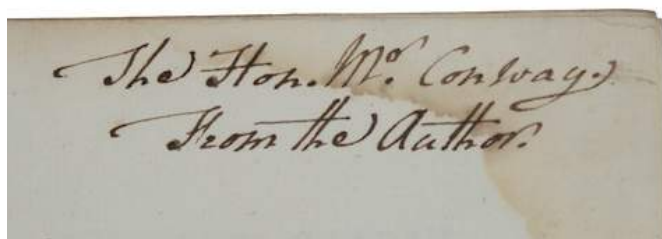 The Hon. Mr. Conway.
From the Author.